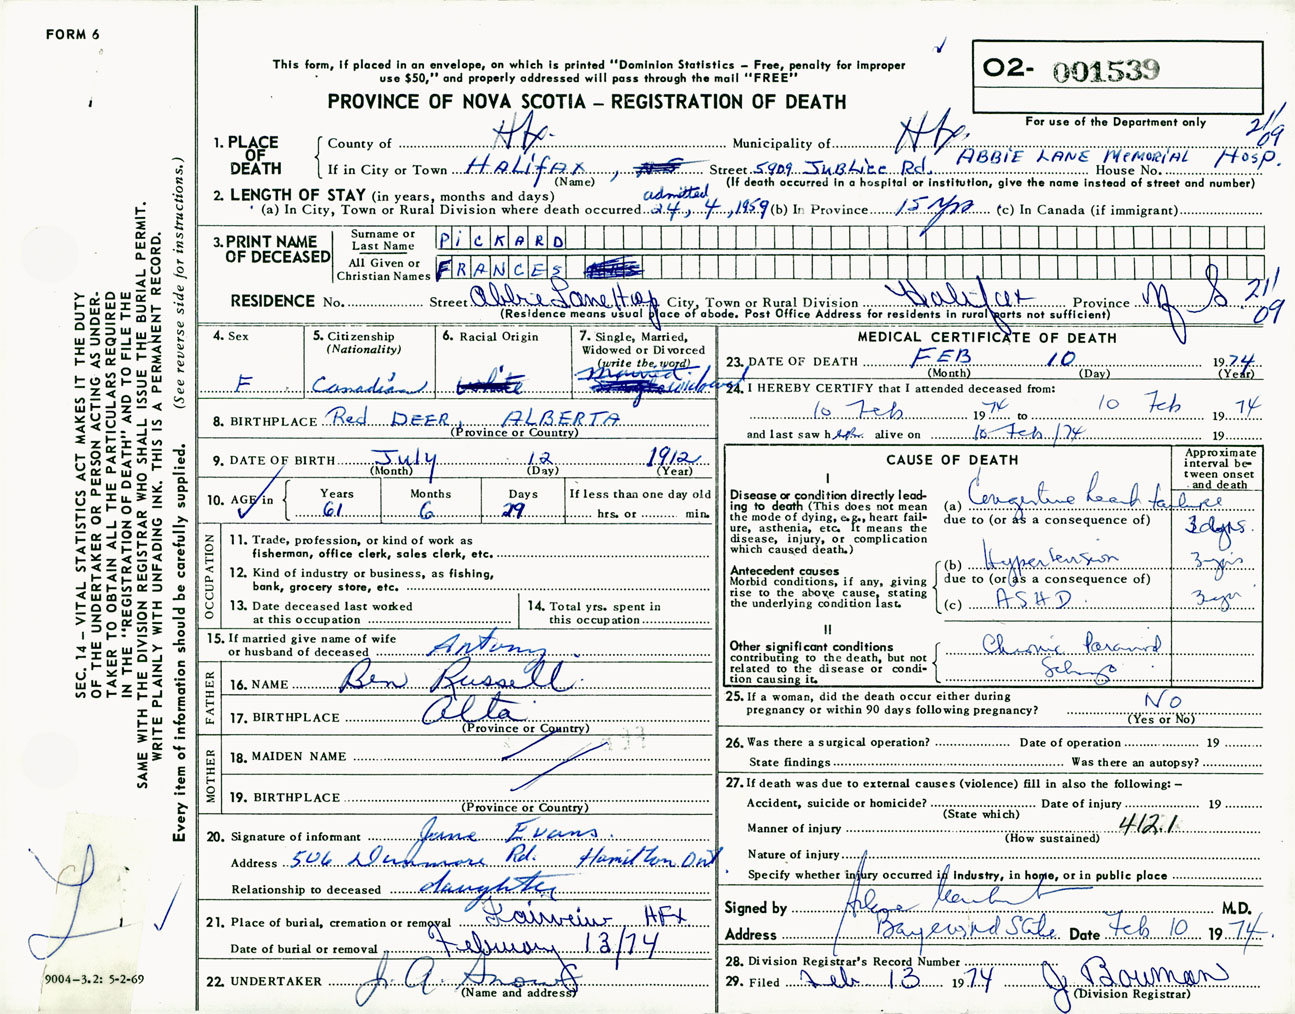 FORM 6
This form, if placed in an envelope, on which is printed "Dominion Statistics – Free, penalty for improper
use $50," and properly addressed will pass through the mail "FREE"
PROVINCE OF NOVA SCOTIA – REGISTRATION OF DEATH
O2- 001539
For use of the Department only
211
09
1. PLACE OF DEATH
County of Hfx. Municipality of Hfx.
If in City or Town HALifAX, Street 5909 JUBLiEE Rd. ABBIE LANE MEMORIAL HOSP. House No.
(Name) (If death occurred in a hospital or institution, give the name instead of street and number)
2. LENGTH OF STAY (in years, months and days) admitted
(a) In City, Town or Rural Division where death occurred 24, 4, 1959 (b) In Province 15 yrs (c) In Canada (if immigrant)
3. PRINT NAME OF DECEASED
Surname or Last Name PiCKARD
All Given or Christian Names FRANCES
RESIDENCE No. Street Abbie Lane Hosp City, Town or Rural Division Halifax Province N S 211
09
(Residence means usual place of abode. Post Office Address for residents in rural parts not sufficient)
4. Sex F
5. Citizenship (Nationality) Canadian
6. Racial Origin white
7. Single, Married, Widowed or Divorced (write the word) married widowed
8. BIRTHPLACE Red DEER, ALBERTA
(Province or Country)
9. DATE OF BIRTH July 12 1912
(Month) (Day) (Year)
10. AGE in Years 61 Months 6 Days 29 If less than one day old hrs. or min.
OCCUPATION
11. Trade, profession, or kind of work as fisherman, office clerk, sales clerk, etc.
12. Kind of industry or business, as fishing, bank, grocery store, etc.
13. Date deceased last worked at this occupation
14. Total yrs. spent in this occupation
15. If married give name of wife or husband of deceased Antony
FATHER
16. NAME Ben Russell
17. BIRTHPLACE Alta
(Province or Country)
MOTHER
18. MAIDEN NAME
19. BIRTHPLACE
(Province or Country)
20. Signature of informant Jane Evans.
Address 506 Dunsmore Rd. Hamilton Ont
Relationship to deceased daughter
21. Place of burial, cremation or removal Fairview HFX
Date of burial or removal February 13/74
22. UNDERTAKER J. A. Snow
(Name and address)
MEDICAL CERTIFICATE OF DEATH
23. DATE OF DEATH FEB 10 1974
(Month) (Day) (Year)
24. I HEREBY CERTIFY that I attended deceased from:
10 Feb 1974 to 10 Feb 1974
and last saw her alive on 10 Feb/74 19
CAUSE OF DEATH
Approximate interval between onset and death
I
Disease or condition directly leading to death (This does not mean the mode of dying, e.g., heart failure, asthenia, etc. It means the disease, injury, or complication which caused death.)
(a) Congestive heart failure
due to (or as a consequence of) 3 days.
Antecedent causes
Morbid conditions, if any, giving rise to the above cause, stating the underlying condition last.
(b) Hypertension 3 yrs
due to (or as a consequence of)
(c) ASHD. 3 yr
II
Other significant conditions contributing to the death, but not related to the disease or condition causing it.
Chronic Paranoid
Schizo
25. If a woman, did the death occur either during pregnancy or within 90 days following pregnancy? NO
(Yes or No)
26. Was there a surgical operation? Date of operation 19
State findings Was there an autopsy?
27. If death was due to external causes (violence) fill in also the following: –
Accident, suicide or homicide? Date of injury 19
(State which)
Manner of injury 412.1
(How sustained)
Nature of injury
Specify whether injury occurred in industry, in home, or in public place
Signed by M.D.
Address Date Feb 10 1974.
28. Division Registrar's Record Number
29. Filed Feb 13 1974 J Bowman
(Division Registrar)
SEC. 14 – VITAL STATISTICS ACT MAKES IT THE DUTY
OF THE UNDERTAKER OR PERSON ACTING AS UNDER-
TAKER TO OBTAIN ALL THE PARTICULARS REQUIRED
IN THE "REGISTRATION OF DEATH" AND TO FILE THE
SAME WITH THE DIVISION REGISTRAR WHO SHALL ISSUE THE BURIAL PERMIT.
WRITE PLAINLY WITH UNFADING INK. THIS IS A PERMANENT RECORD.
Every item of information should be carefully supplied. (See reverse side for instructions.)
9004-3.2: 5-2-69